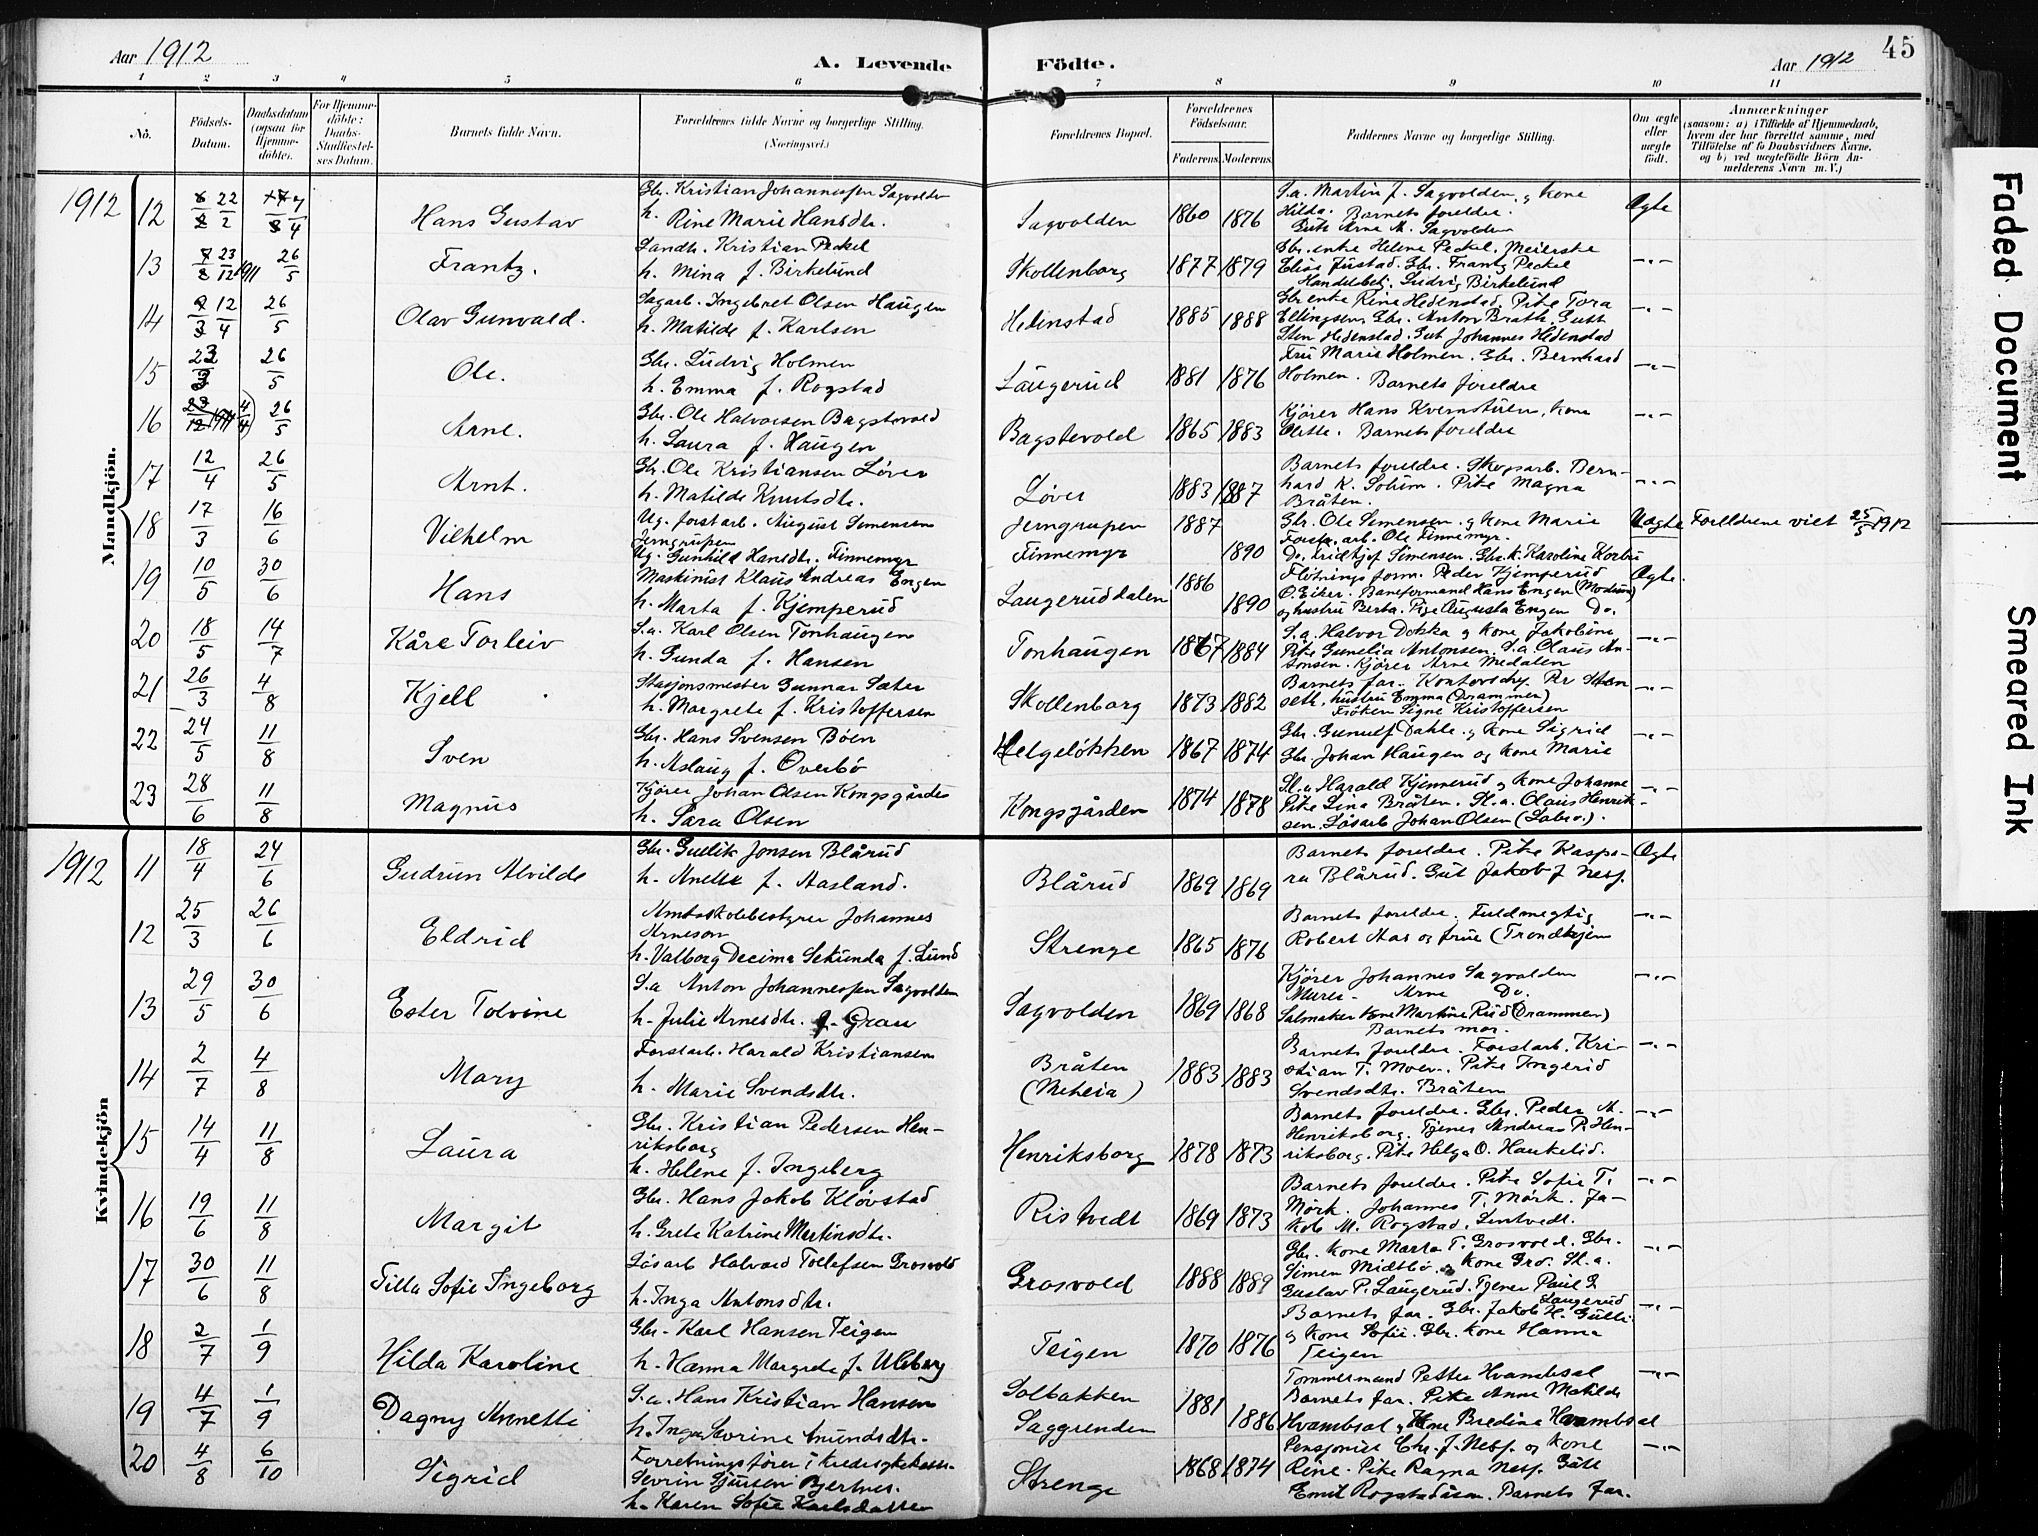 Aar 1912
A. Levende Födte.
Aar 1912 45
1 2 3 4 5 6 7 8 9 10 11
No.
Födsels-Datum.
Daabsdatum (ogsaa for Hjemme-döbte).
For Hjemme-döbte: Daabs-Stadfæstel-ses Datum.
Barnets fulde Navn.
Forældrenes fulde Navne og borgerlige Stilling. (Næringsvei.)
Forældrenes Bopæl.
Forældrenes Födselsaar.
Faderens. Moderens.
Faddernes Navne og borgerlige Stilling.
Om ægte eller uægte födt.
Anmærkninger
(saasom: a) i Tilfælde af Hjemmedaab, hvem der har forrettet samme, med Tilföielse af to Daabsvidners Navne, og b) ved uægtefödte Börn An-melderens Navn m. V.)
Mandkjön.
1912 12 22/2 7/4 Hans Gustav
Gbr. Kristian Johannessen Sagvolden
h. Rine Marie Hansdtr.
Sagvolden 1860 1876
S.a. Martin J. Sagvolden og kone
Hilda. Barnets foreldre.
Gut Arne M. Sagvolden
Ægte
13 23/12 1911 26/5 Frantz.
Landh. Kristian Peckel
h. Mina f. Birkelund
Skollenborg 1877 1879
Gbr. enke Helene Peckel. Meierske
Elise Fustad. Gbr. Frantz Peckel
Handelsbetj. Ludvig Birkelund
-"-
14 12/4 26/5 Olav Gunvald.
Sagarb. Ingebret Olsen Haugen
h. Matilde f. Karlsen
Hedenstad 1885 1888
Gbr enke Rine Hedenstad. Pike Tora
Ellingsen. Gbr. Anton Bråth. Gutt
Sten Hedenstad. Gut Johannes Hedenstad
-"-
15 23/3 26/5 Ole.
Gbr. Ludvig Holmen
h. Emma f. Rogstad
Laugerud 1881 1876
Fru Marie Holmen. Gbr. Bernhard
Holmen. Barnets foreldre
-"-
16 23/12 1911 4/4) 26/5 Arne.
Gbr. Ole Halvorsen Bagstevold
h. Laura f. Haugen
Bagstevold 1865 1883
Kjører Hans Kvernstuen, kone
Barnets foreldre
-"-
17 12/4 26/5 Arnt.
Gbr. Ole Kristiansen Løver
h. Matilde Knutsdtr.
Løver 1883 1887
Barnets foreldre. Skogsarb. Bern-
hard K. Solum. Pike Magna
Bråten.
-"-
18 17/3 16/6 Vilhelm
Ug. forstarb. August Simensen
Jerngrupen
Ug. Gunhild Hansdtr. Finnemyr
Jerngrupen
Finnemyr
1887 1890
Gbr. Ole Simensen og kone Marie
Forstarb. Ole Finnemyr.
Do. Fridtjof Simensen. Gbr.k. Karoline
Uægte Forelldrene viet 25/5 1912
19 10/5 30/6 Hans
Maskinist Klaus Andreas Engen
h. Marta f. Kjemperud
Laugeruddalen 1886 1890
Fløtningsform. Peder Kjemperud
Ø. Eiker. Baneformand Hans Engen (Modum)
og hustru Berta. Pige Augusta Engen Do.
Ægte.
20 18/5 14/7 Kåre Torleiv
S.a. Karl Olsen Tonhaugen
h. Gunda f. Hansen
Tonhaugen 1867 1884
S.a. Halvor Dokka og kone Jakobine
Pike Gunelia Antonsen. S.a. Olaus An-
tonsen. Kjører Arne Medalen
-"-
21 26/3 4/8 Kjell
Stasjonsmester Gunnar Sæter
h. Margrete f. Kristoffersen
Skollenborg 1873 1882
Barnets far. Kontorchef Per
seth, hustru Emma (Drammen)
Frøken Signe Kristoffersen
-"-
22 24/5 11/8 Sven
Gbr. Hans Svensen Bøen
h. Aslaug f. Overbø
Helgeløkken 1867 1874
Gbr. Gunulf Dahle og kone Sigrid
Gbr. Johan Haugen og kone Marie
-"-
23 28/6 11/8 Magnus
Kjører Johan Olsen Kongsgården
h. Sara Olsen
Kongsgården 1874 1878
Sl.a. Harald Kjennerud og kone Johanne
Pike Lina Bråten. Sl.a. Olaus Henrik-
sen. Løsarb Johan Olsen (Labro.).
-"-
Kvindekjön
1912 11 18/4 24/6 Gudrun Alvilde
Gbr. Gullik Jonsen Blårud
h. Anette f. Aasland.
Blårud 1869 1869
Barnets foreldre. Pike Kaspa-
ra Blårud. Gut Jakob J Nesf.
Ægte
12 25/3 26/6 Eldrid
Amtsskolebestyrer Johannes
Arneson
h. Valborg Decima Sekunda f. Lund
Strenge 1865 1876
Barnets foreldre. Fuldmegtig
Robert Aas og frue (Trondhjem
-"-
13 29/5 30/6 Ester Tolvine
S.a Anton Johannessen Sagvolden
h. Julie Arnesdtr. f. Grau
Sagvolden 1869 1868
Kjører Johannes Sagvolden
Murer Arne Do.
Salmaker kone Martine Rud (Drammen)
Barnets mor.
-"-
14 2/7 4/8 Mary
Forstarb. Harald Kristiansen
h. Marie Svendsdtr.
Bråten
(Meheia) 1883 1883
Barnets foreldre. Forstarb. Kri-
stian T. Moen. Pike Ingerid
Svendsdtr. Bråten
-"-
15 14/4 11/8 Laura
Gbr. Kristian Pedersen Hen-
riksborg
h. Helene f. Ingeberg
Henriksborg 1878 1873
Barnets foreldre. Gbr. Peder A.
Henriksborg. Tjener Andreas P. Hen-
riksborg. Pike Helga O. Haukelid.
-"-
16 19/6 11/8 Margit
Gbr. Hans Jakob Kløvstad
h. Grete Katrine Martinsdtr.
Ristvedt 1869 1873
Barnets foreldre. Pike Sofie T.
Mørk. Johannes T. Mørk. Ja-
kob M. Rogstad, Lintvedt.
-"-
17 30/6 11/8 Tilla Sofie Ingeborg
Løsarb Halvard Tollefsen Grosvold
h. Inga Antonsdtr.
Grosvold 1888 1889
Gbr. kone Marta T. Grosvold. Gbr.
Simen Midtbø og kone Gro. Sl.a.
Gustav P. Laugerud. Tjener Paul G
Laugerud
-"-
18 2/7 1/9 Hilda Karoline
Gbr. Karl Hansen Teigen
h. Hanna Margrete f. Ulleberg
Teigen 1870 1876
Barnets far. Gbr. Jakob H. Gulli
og kone Sofie. Gbr. kone Hanna
Teigen
-"-
19 4/7 1/9 Dagny Annette
S.a. Hans Kristian Hansen
h. Inga Severine Amundsdtr.
Solbakken
Saggrenden 1881 1886
Tømmermand Petter Hvambsal
Barnets far. Pike Anne Matilde
Hvambsal og kone Bredine Hvambsal
-"-
20 4/8 6/10 Sigrid
Forretningsfører i Kredssykekasse
Severin Sjursen Bjertnes.
h. Karen Sofie Karlsdatter
Strenge 1868 1874
Pensjonist Chr. J. Nesf. og kone
Rine. Pike Ragna Nesf. Gutt
Emil Rogstadåsen. Barnets far.
-"-
Faded Document Smeared Ink